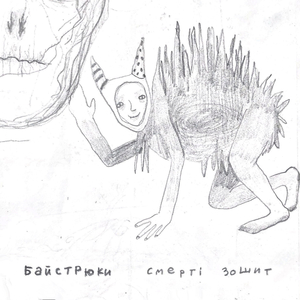 Байстрюки смерті зошит